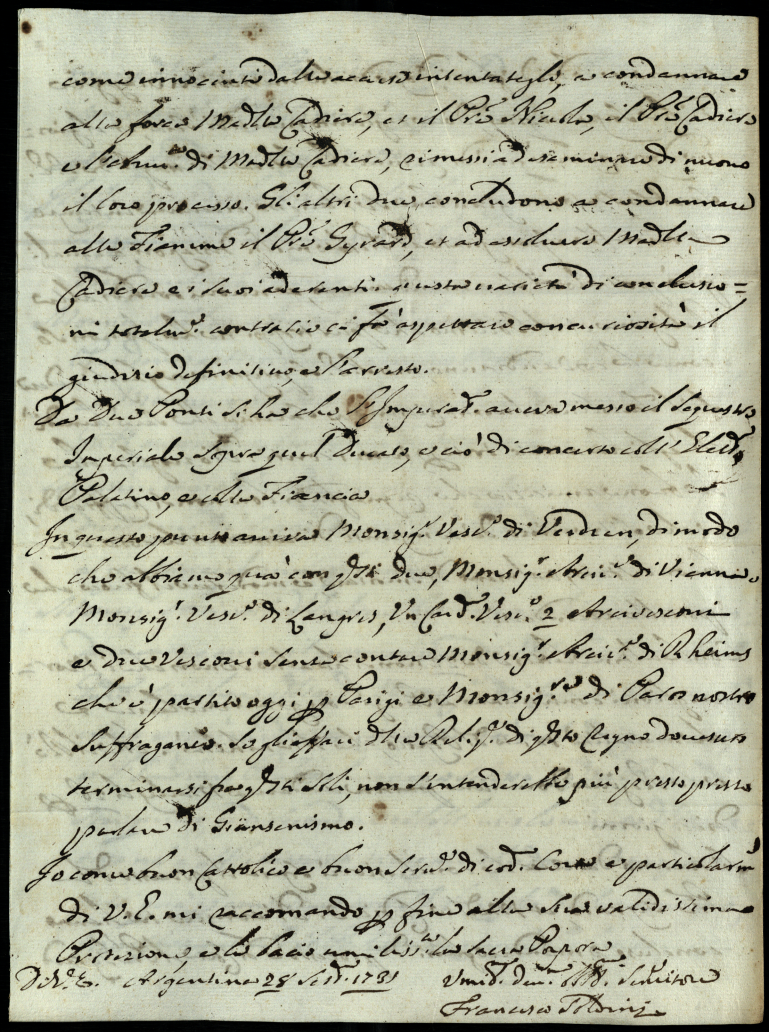 come innocente dalle accuse intentategli, e condannare
alla forca Madlla Cadiere, et il Pre Nicola, il Pre Cadiere
e l'altro di Madlla Cadiere, rimessi ad esaminare di nuovo
il loro processo. Gli altri due concludono a condannare
alle Fiamme il Pre Gyrard, et ad assoluere Madlla
Cadiere e i suoi aderenti: questa varietà di conclusio=
ni totalmte contrarie ci fà aspettare con curiosità il
giudizio definitivo, e l'arresto.
Da Due Ponti si ha che l'Imperad. aveva messo il sequestro
Imperiale sopra quel Ducato, e ciò di concerto coll' Elett.
Palatino, e colla Francia
In questo punto arriva Monsigr. Vesco. di Verdun, di modo
che abbiamo quà con qsti due, Monsigr. Arcivo. di Vienna
Monsigr. Vesco. di Langres, Un Card. Vesco. 2 Arcivescovi
e due Vescovi senza contare Monsigr. Arcivo. di Rheims
che è partito oggi p Parigi e Monsigre di Paros nostro
Suffraganeo. Se gli affari dlla Relige. di qsto Regno dovessero
terminarsi fra qsti Sli, non s'intenderebbe più presto presto
parlare di Giansenismo.
Io come buon Cattolico e buon Serve. di cod. Corte e particolarm.
di V. E. mi raccomando p fine alla sua validissima
Protezione, e le bacio umiliss.te la Sacra Porpora
Di V. E. Argentina 28 Sett. 1731 Umil. Dev. Obb. Servitore
Francesco